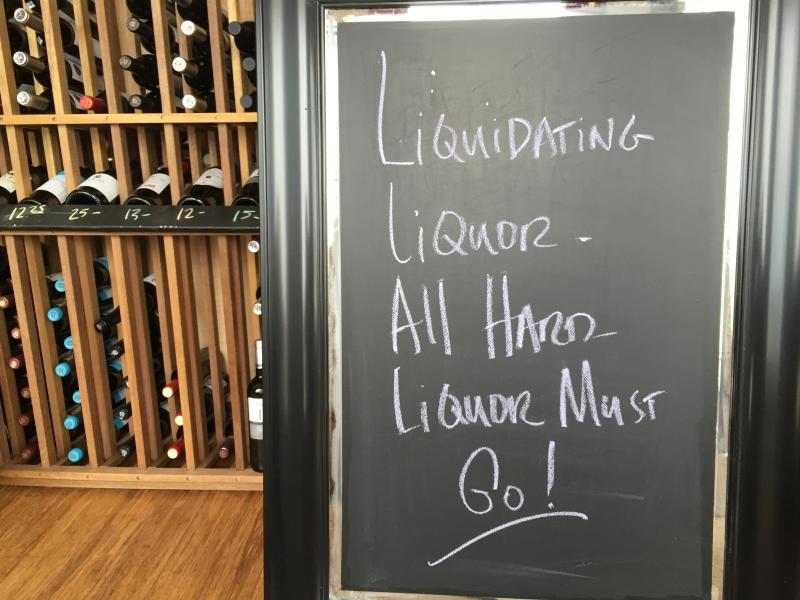 LIQUIDATING
LIQUOR -
All HARD
LIQUOR MUST
GO!
12.25 25- 13- 12- 15-